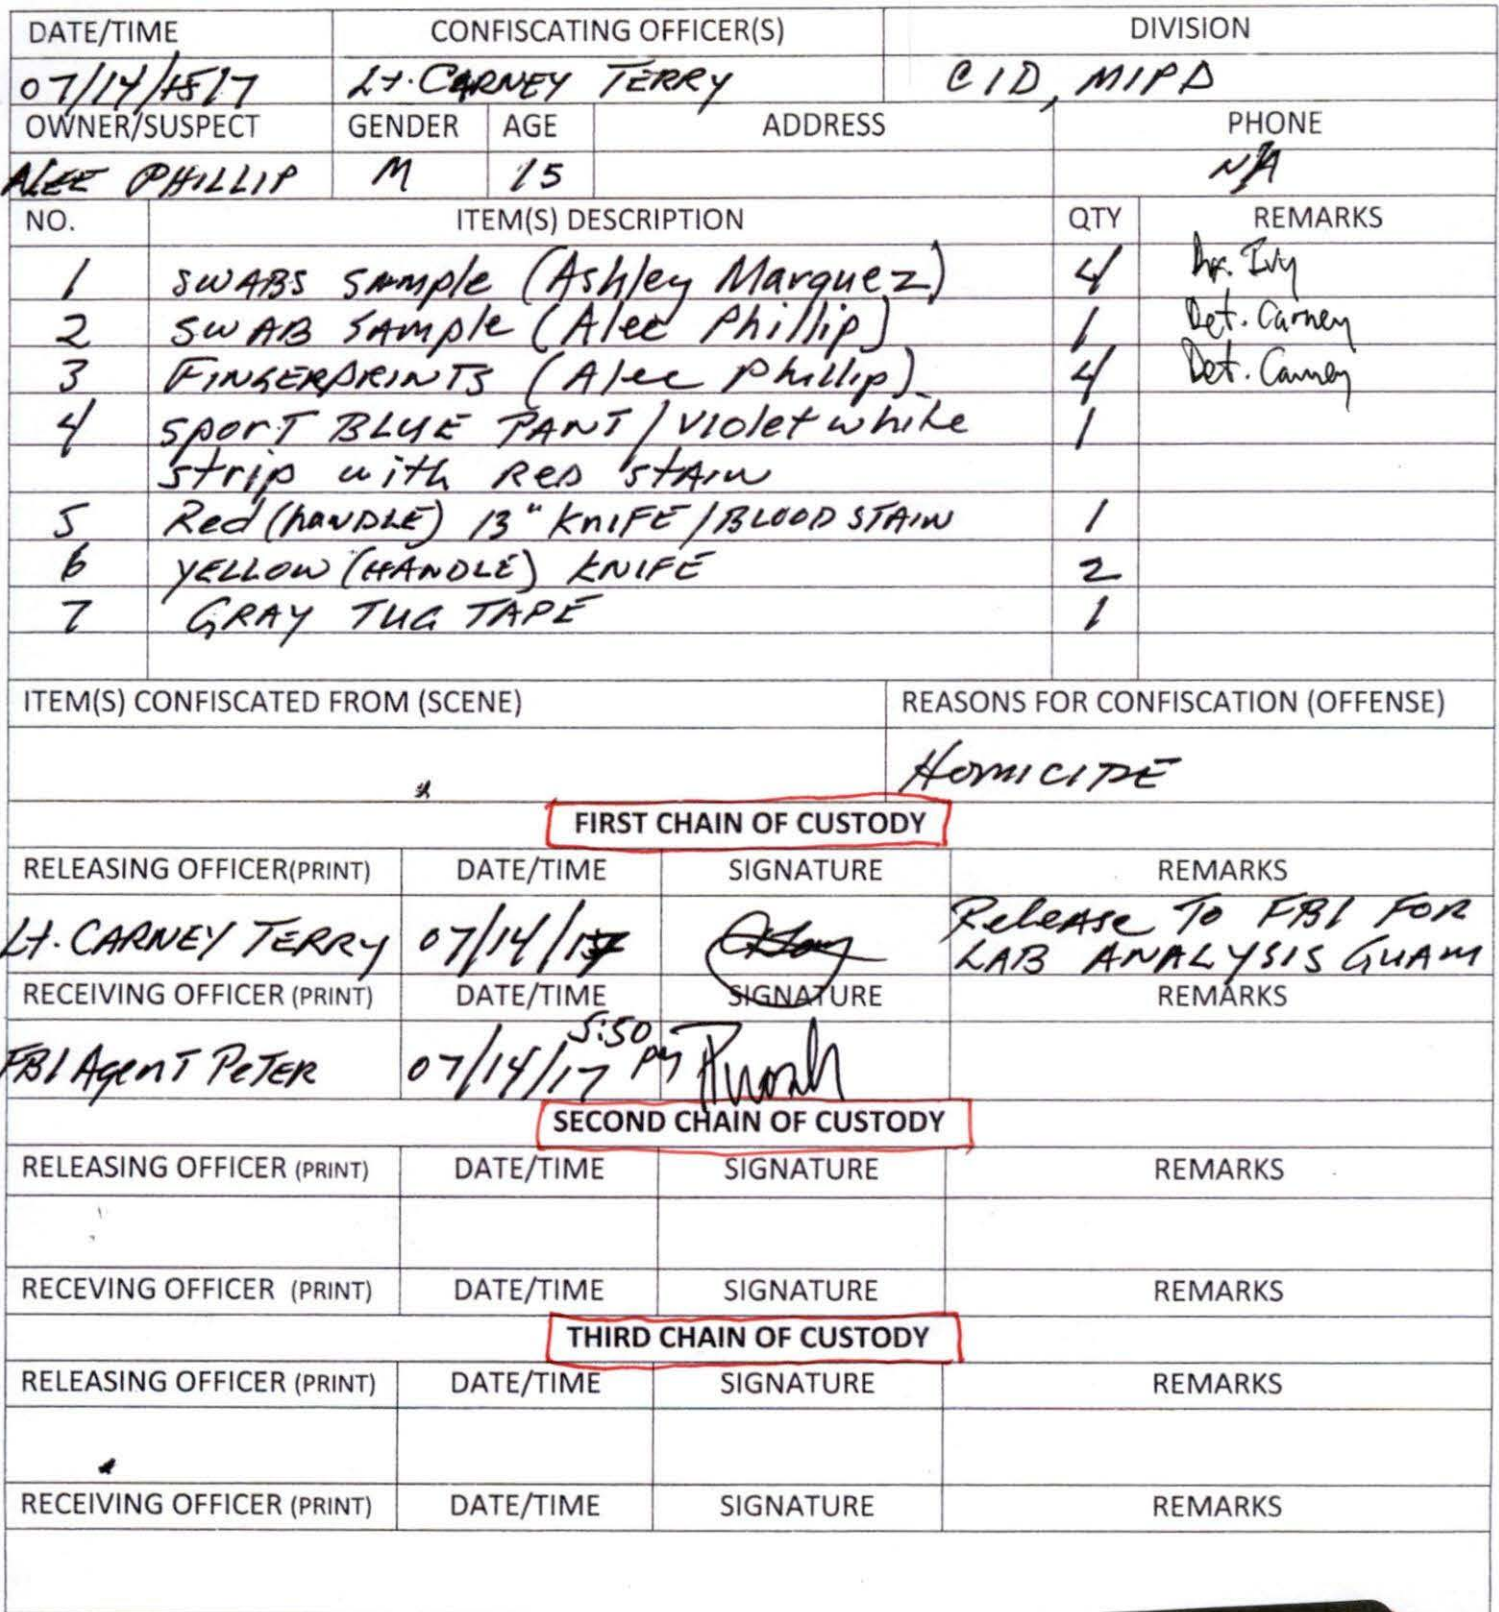 DATE/TIME CONFISCATING OFFICER(S) DIVISION
07/14/1517 Lt. CARNEY TERRY CID, MIPD
OWNER/SUSPECT GENDER AGE ADDRESS PHONE
ALEE PHILLIP M 15 N/A
NO. ITEM(S) DESCRIPTION QTY REMARKS
1 SWABS SAmple (Ashley Marquez) 4 Ivy
2 SWAB SAmple (Alee Phillip) 1 Det. Carney
3 FINGERPRINTS (Alee Phillip) 4 Det. Carney
4 sporT BLUE PANT/violet white 1
strip with RED STAIN
5 Red (HANDLE) 13" KNIFE/BLOOD STAIN 1
6 YELLOW (HANDLE) KNIFE 2
7 GRAY TUG TAPE 1
ITEM(S) CONFISCATED FROM (SCENE) REASONS FOR CONFISCATION (OFFENSE)
HOMICIDE
FIRST CHAIN OF CUSTODY
RELEASING OFFICER(PRINT) DATE/TIME SIGNATURE REMARKS
Lt. CARNEY TERRY 07/14/17 Release To FBI FOR
LAB ANALYSIS GUAM
RECEIVING OFFICER (PRINT) DATE/TIME SIGNATURE REMARKS
FBI Agent PETER 07/14/17 5:50 pm
SECOND CHAIN OF CUSTODY
RELEASING OFFICER (PRINT) DATE/TIME SIGNATURE REMARKS
RECEVING OFFICER (PRINT) DATE/TIME SIGNATURE REMARKS
THIRD CHAIN OF CUSTODY
RELEASING OFFICER (PRINT) DATE/TIME SIGNATURE REMARKS
RECEIVING OFFICER (PRINT) DATE/TIME SIGNATURE REMARKS